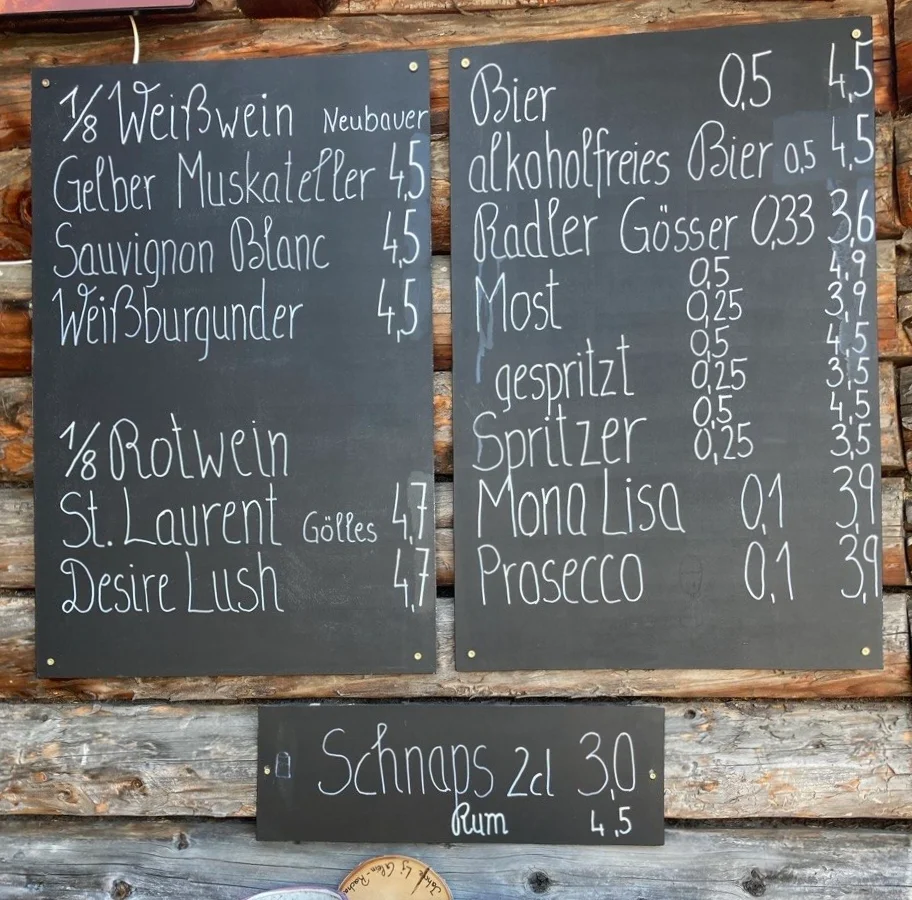 1/8 Weißwein Neubauer
Gelber Muskateller 4,5
Sauvignon Blanc 4,5
Weißburgunder 4,5
1/8 Rotwein
St. Laurent Gölles 4,7
Desire Lush 4,7
Bier 0,5 4,5
alkoholfreies Bier 0,5 4,5
Radler Gösser 0,33 3,6
0,5 4,9
Most 0,25 3,9
0,5 4,5
gespritzt 0,25 3,5
0,5 4,5
Spritzer 0,25 3,5
Mona Lisa 0,1 3,9
Prosecco 0,1 3,9
Schnaps 2cl 3,0
Rum 4,5